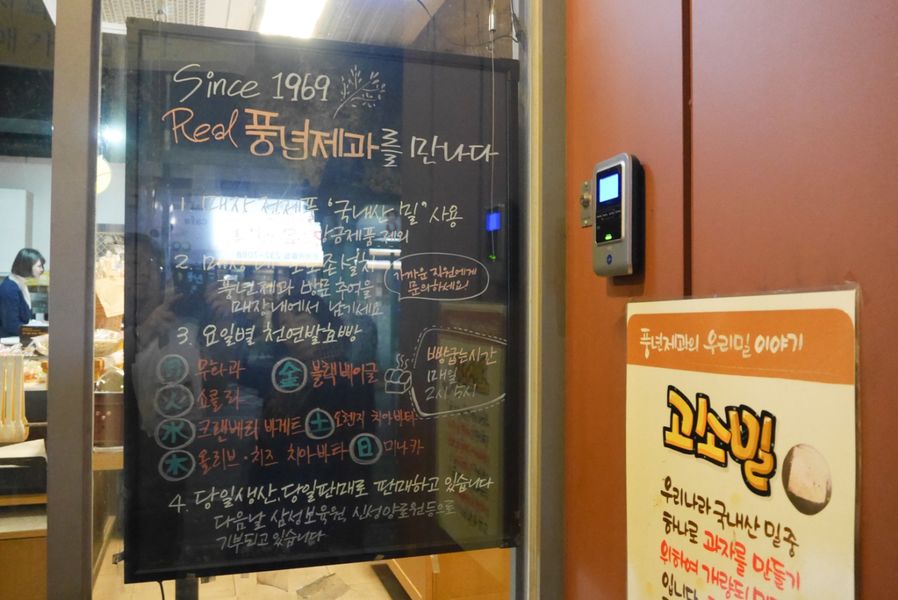 Since 1969
Real 풍년제과를 만나다
1. 매장 전제품 "국내산 밀" 사용
앙금제품 제외
2. 매장
풍년제과 방문 추억을
매장내에서 남기세요
가까운 직원에게
문의하세요!
3. 요일별 천연발효빵
月 무화과 金 블랙베이글
火 쇼콜라
水 크랜베리 바게트 土 오렌지 치아바타
木 올리브·치즈 치아바타 日 미나카
빵굽는시간
매일
2시, 5시
4. 당일생산, 당일판매로 판매하고 있습니다
다음날 삼성보육원, 신성양로원등으로
기부되고 있습니다
풍년제과의 우리밀 이야기
고소밀
우리나라 국내산 밀중
하나로 과자를 만들기
위하여 개량된
입니다